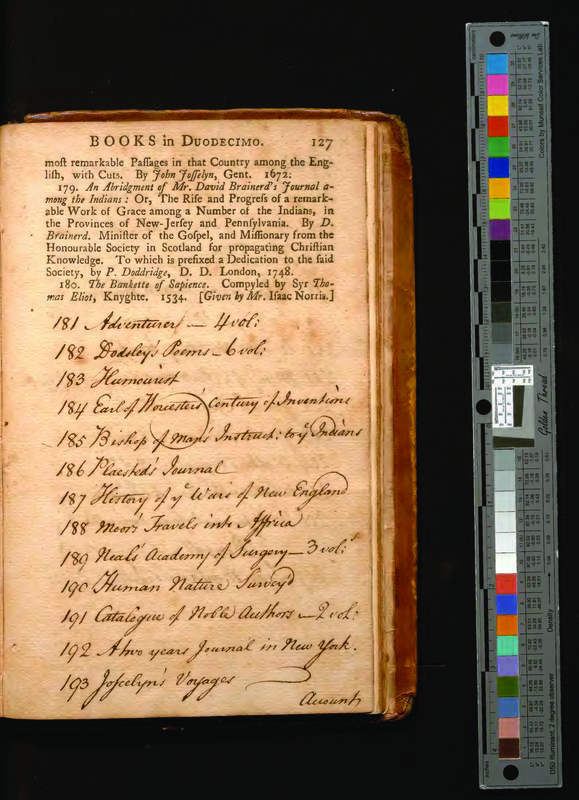 BOOKS in DUODECIMO. 127
moſt remarkable Paſſages in that Country among the Eng-
liſh, with Cuts. By John Joſſelyn, Gent. 1672:
179. An Abridgment of Mr. David Brainerd's Journal a-
mong the Indians: Or, The Riſe and Progreſs of a remark-
able Work of Grace among a Number of the Indians, in
the Provinces of New-Jerſey and Pennſylvania. By D.
Brainerd. Miniſter of the Goſpel, and Miſſionary from the
Honourable Society in Scotland for propagating Chriſtian
Knowledge. To which is prefixed a Dedication to the ſaid
Society, by P. Doddridge, D. D. London, 1748.
180. The Bankette of Sapience. Compyled by Syr Tho-
mas Eliot, Knyghte. 1534. [Given by Mr. Isaac Norris.]
181 Adventurer — 4 vol:
182 Dodsley's Poems — 6 vol:
183 Humourist
184 Earl of Worcesters Century of Inventions
185 Bishop of Man's Instruct: to yͤ Indians
186 Placsted's Journal
187 History of yͤ Wars of New England
188 Moor's Travels into Affrica
189 Neal's Academy of Surgery — 3 vol:
190 Human Nature Survey'd
191 Catalogue of Noble Authors — 2 vol:
192 A two years Journal in New York.
193 Joſcelyn's Voyages
Account
Colors by Munsell Color Services Lab
Golden Thread
Density
D50 Illuminant, 2 degree observer
inches
centimeters